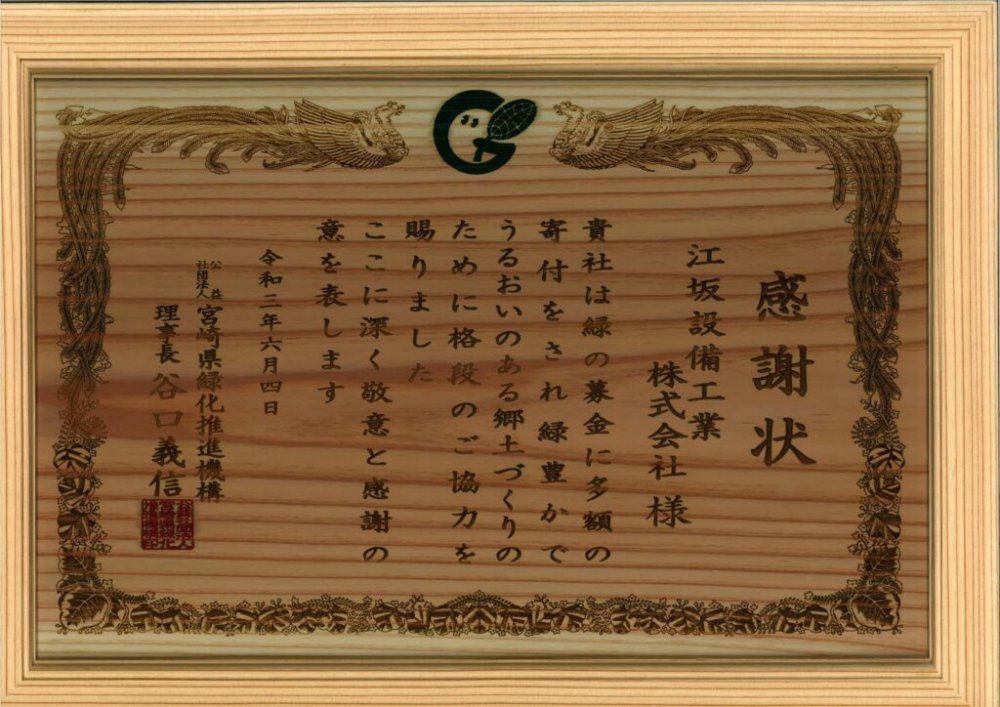 感謝状
江坂設備工業
株式会社 様
貴社は緑の募金に多額の
寄付をされ緑豊かで
うるおいのある郷土づくりの
ために格段のご協力を
賜りました
ここに深く敬意と感謝の
意を表します
令和三年六月四日
公益社団法人 宮崎県緑化推進機構
理事長 谷口義信